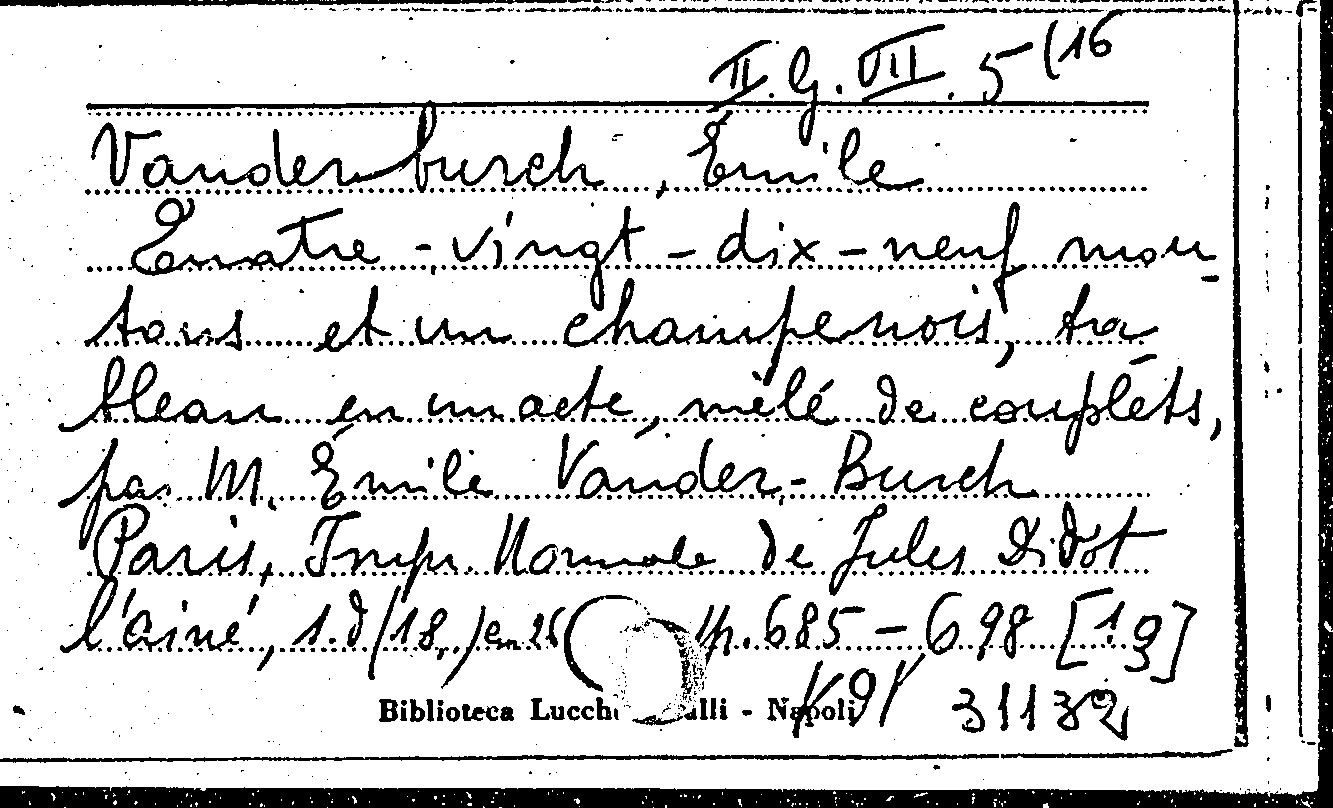 II. G. VII. 5 (16
Vanderburch, Émile
Quatre-vingt-dix-neuf mou-
tons et un champenois, ta
bleau en un acte, mêlé de couplets,
par M. Émile Vander-Burch
Paris, Impr. Normale de Jules Didot
l'ainé, 1.d (18,) cm 26 pp. 685-698 [1.9]
Biblioteca Lucch alli - Napoli
31132